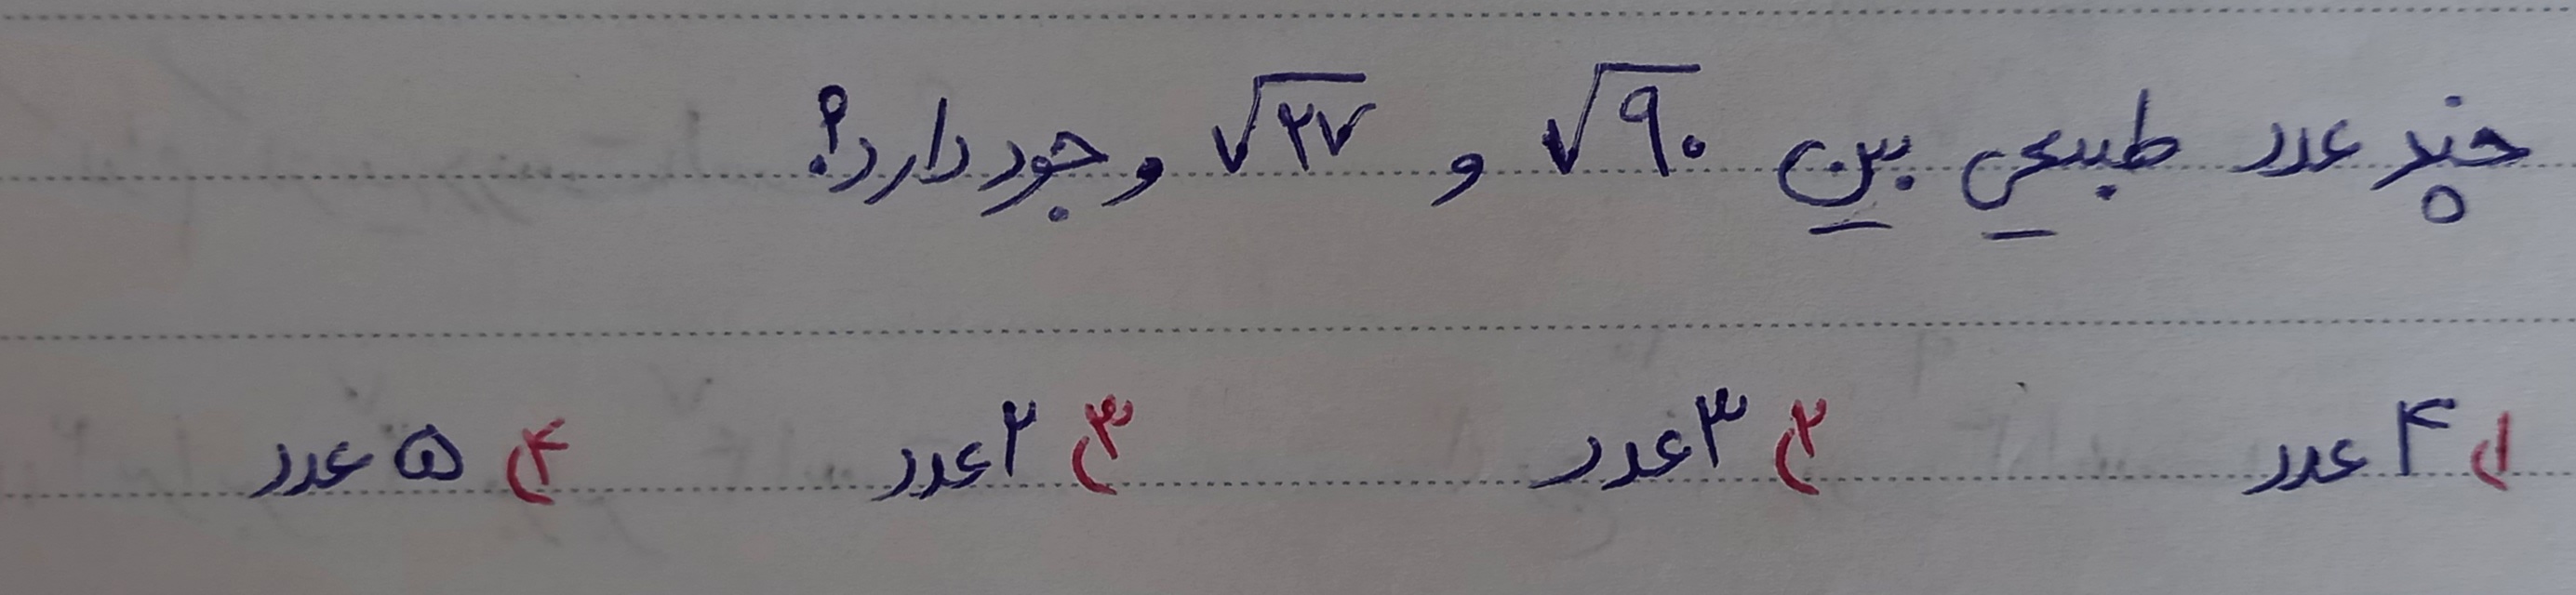 چند عدد طبیعی بین √۹۰ و √۲۷ وجود دارد؟
۱) ۴ عدد ۲) ۳ عدد ۳) ۲ عدد ۴) ۵ عدد